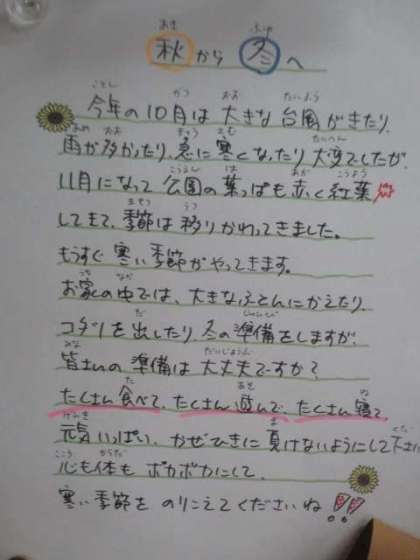 秋から冬へ
今年の10月は大きな台風がきたり、
雨が多かったり、急に寒くなったり大変でしたが、
11月になって公園の葉っぱも赤く紅葉
してきて、季節は移りかわってきました。
もうすぐ寒い季節がやってきます。
お家の中では、大きなふとんにかえたり、
コタツを出したり冬の準備をしますが、
皆さんの準備は大丈夫ですか?
たくさん食べて、たくさん遊んで、たくさん寝て
元気いっぱい、かぜひきに負けないようにして下さい
心も体もポカポカにして、
寒い季節をのりこえてくださいね!!